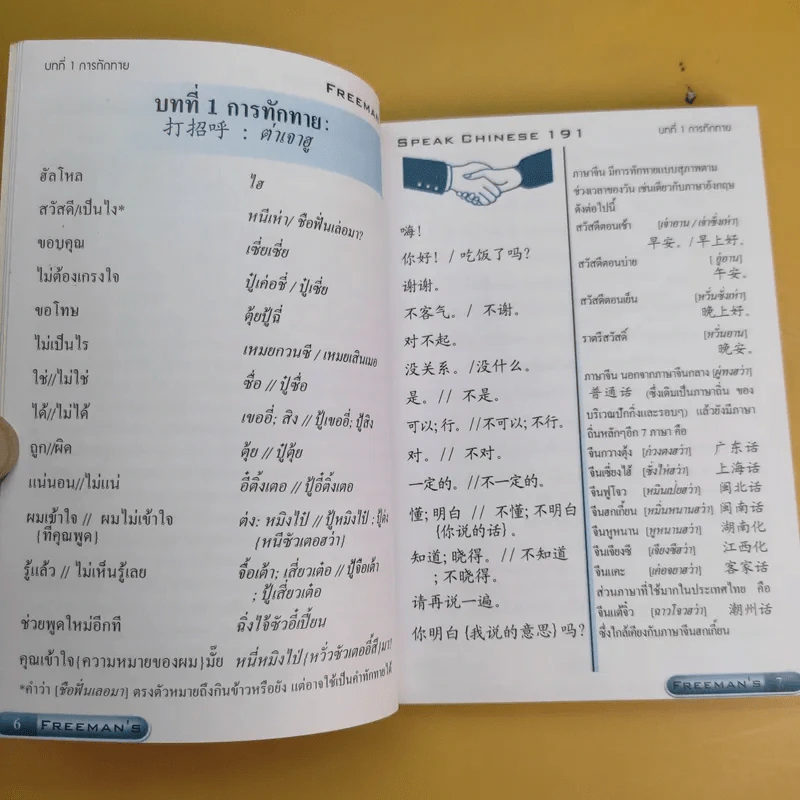 บทที่ 1 การทักทาย
FREEMAN'S
บทที่ 1 การทักทาย:
打招呼 : ต่าเจาฮู
ฮัลโหล ไฮ
สวัสดี/เป็นไง* หนีเห่า/ ชือฟั่นเล่อมา?
ขอบคุณ เซี่ยเซี่ย
ไม่ต้องเกรงใจ ปู๋เค่อชี่ / ปู๋เซี่ย
ขอโทษ ตุ้ยปู้ฉี่
ไม่เป็นไร เหมยกวนซี / เหมยเสินเมอ
ใช่//ไม่ใช่ ซื่อ // ปู๋ซื่อ
ได้//ไม่ได้ เขออี่; สิง // ปู้เขออี่; ปู้สิง
ถูก//ผิด ตุ้ย // ปู๋ตุ้ย
แน่นอน//ไม่แน่ อี๋ติ้งเตอ // ปู้อี๋ติ้งเตอ
ผมเข้าใจ // ผมไม่เข้าใจ ต่ง: หมิงไป๋ // ปู้หมิงไป๋ ;ปู้ต่ง
{ที่คุณพูด} {หนี่ซัวเตอฮว่า}
รู้แล้ว // ไม่เห็นรู้เลย จื้อเต้า; เสี่ยวเต๋อ // ปู้จือเต้า
; ปู้เสี่ยวเต๋อ
ช่วยพูดใหม่อีกที ฉิ่งไจ้ซัวอี๋เปี้ยน
คุณเข้าใจ{ความหมายของผม}มั๊ย หนี่หมิงไป๋ {หวั่วซัวเตออี้สึ}มา?
*คำว่า [ชือฟั่นเลอมา] ตรงตัวหมายถึงกินข้าวหรือยัง แต่อาจใช้เป็นคำทักทายได้
6 FREEMAN'S
SPEAK CHINESE 191 บทที่ 1 การทักทาย
嗨!
你好! / 吃饭了吗?
谢谢。
不客气。/ 不谢。
对不起。
没关系。/没什么。
是。// 不是。
可以; 行。//不可以; 不行。
对。// 不对。
一定的。//不一定的。
懂; 明白 // 不懂; 不明白
{你说的话}。
知道; 晓得。// 不知道
; 不晓得。
请再说一遍。
你明白 {我说的意思} 吗?
ภาษาจีน มีการทักทายแบบสุภาพตาม
ช่วงเวลาของวัน เช่นเดียวกับภาษาอังกฤษ
ดังต่อไปนี้
สวัสดีตอนเช้า [เจ่าอาน / เจ่าซั่งเห่า]
早安。/早上好。
สวัสดีตอนบ่าย [อู่อาน]
午安。
สวัสดีตอนเย็น [หวั่นซั่งเห่า]
晚上好。
ราตรีสวัสดิ์ [หวั่นอาน]
晚安。
ภาษาจีน นอกจากภาษาจีนกลาง [ผู่ทงฮว่า]
普通话 (ซึ่งเดิมเป็นภาษาถิ่น ของ
บริเวณปักกิ่งและรอบๆ) แล้วยังมีภาษา
ถิ่นหลักๆอีก 7 ภาษา คือ
จีนกวางตุ้ง [ก่วงตงฮว่า] 广东话
จีนเซี่ยงไฮ้ [ซั่งไห่ฮว่า] 上海话
จีนฟูโจว [หมินเปยฮว่า] 闽北话
จีนฮกเกี้ยน [หมิ่นหนานฮว่า] 闽南话
จีนหูหนาน [หูหนานฮว่า] 湖南化
จีนเจียงซี [เจียงซีฮว่า] 江西化
จีนแคะ [เค่อจยาฮว่า] 客家话
ส่วนภาษาที่ใช้มากในประเทศไทย คือ
จีนแต้จิ๋ว [ฉาวโจวฮว่า] 潮州话
ซึ่งใกล้เคียงกับภาษาจีนฮกเกี้ยน
FREEMAN'S 7